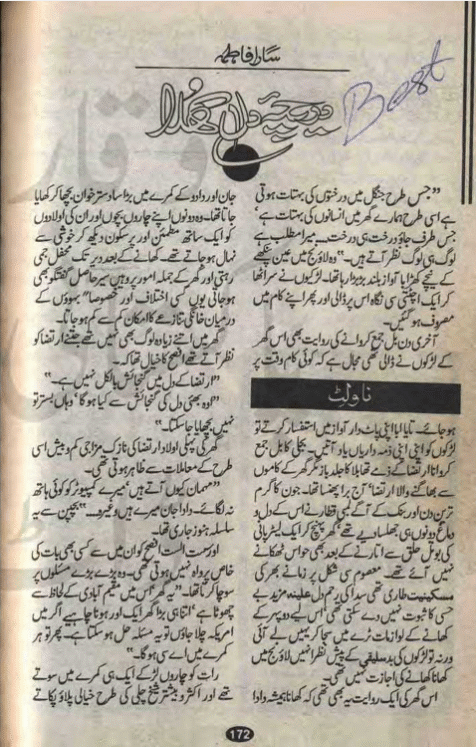 سارا فاطمہ
دریچۂ دل کھلا
Best
”جس طرح جنگل میں درختوں کی بہتات ہوتی
ہے اسی طرح ہمارے گھر میں انسانوں کی بہتات ہے‘
جس طرف جاؤ درخت ہی درخت۔ میرا مطلب ہے
لوگ ہی لوگ نظر آتے ہیں۔“ وہ لاؤنج میں عین پنکھے
کے نیچے کھڑا بآواز بلند بڑبڑا رہا تھا۔ لڑکیوں نے سر اٹھا
کر ایک اچٹتی سی نگاہ اس پر ڈالی اور پھر اپنے کام میں
مصروف ہو گئیں۔
آخری دن بل جمع کروانے کی روایت بھی اس گھر
کے لڑکوں نے ڈالی تھی مجال ہے کہ کوئی کام وقت پر
ناولٹ
ہو جائے۔ تایا ابا اپنی پاٹ دار آواز میں استفسار کرتے تو
لڑکوں کو اپنی اپنی ذمہ داریاں یاد آتیں۔ بجلی کا بل جمع
کروانا ارتضا کے ذمے تھا بلا کا جلد باز مگر گھر کے کاموں
سے بھاگنے والا ارتضا‘ آج برا پھنسا تھا۔ جون کا گرم
ترین دن اور بنک کے آگے لمبی قطار نے اس کے دل و
دماغ دونوں ہی جھلسا دیے تھے‘ گھر پہنچ کر ایک لیٹر پانی
کی بوتل حلق سے اتارنے کے بعد بھی حواس ٹھکانے
نہیں آئے تھے۔ معصوم سی شکل پر زمانے بھر کی
مسکینیت طاری تھی سدا کی رحم دل علینہ مزید بے
حسی کا ثبوت نہیں دے سکتی تھی اس لیے دوپہر کے
کھانے کے لوازمات ٹرے میں سجا کر یہیں لے آئی
ورنہ تو لڑکوں کی بدسلیقی کے پیش نظر انہیں لاؤنج میں
کھانا کھانے کی اجازت نہیں تھی۔
اس گھر کی ایک روایت یہ بھی تھی کہ کھانا ہمیشہ دادا
جان اور دادو کے کمرے میں بڑا سا دسترخوان بچھا کر کھایا
جاتا تھا۔ وہ دونوں اپنے چاروں بچوں اور ان کی اولادوں
کو ایک ساتھ مطمئن اور پرسکون دیکھ کر خوشی سے
نہال ہو جاتے تھے۔ کھانے کے بعد دیر تک محفل جمی
رہتی اور گھر کے جملہ امور پر وہیں سیر حاصل گفتگو بھی
ہو جاتی یوں کسی اختلاف اور خصوصاً بہوؤں کے
درمیان خانگی تنازعے کا امکان کم سے کم ہو جاتا۔
گھر میں اتنے زیادہ لوگ بھی نہیں تھے جتنے ارتضا کو
نظر آتے تھے افصح کا خیال تھا کہ۔
”ارتضا کے دل میں گنجائش بالکل نہیں ہے۔“
”اوہ بھئی دل کی گنجائش سے کیا ہو گا‘ وہاں بستر تو
نہیں بچھایا جا سکتا۔“
گھر کی پہلی اولاد ارتضا کی نازک مزاجی کم و بیش اسی
طرح کے معاملات سے ظاہر ہوتی تھی۔
”مہمان کیوں آتے ہیں‘ میرے کمپیوٹر کو کوئی ہاتھ
نہ لگائے۔ دادا جان میرے ہیں وغیرہ۔“ بچپن سے یہ
سلسلہ ہنوز جاری تھا۔
اور مست الست افصح کو ان میں سے کسی بھی بات کی
خاص پرواہ نہیں ہوتی تھی۔ وہ بڑے بڑے مسئلوں پر
سوچا کرتا تھا۔ ”یہ گھر اس میں مقیم آبادی کے لحاظ سے
چھوٹا ہے‘ اتنا ہی بڑا گھر ایک اور ہونا چاہیے اگر میں
امریکہ چلا جاؤں تو یہ مسئلہ حل ہو سکتا ہے۔ پھر تو ہر
کمرے میں اے سی ہو گا۔“
رات کو چاروں لڑکے ایک ہی کمرے میں سوتے
تھے اور اکثر و بیشتر شیخ چلی کی طرح خیالی پلاؤ پکاتے
172